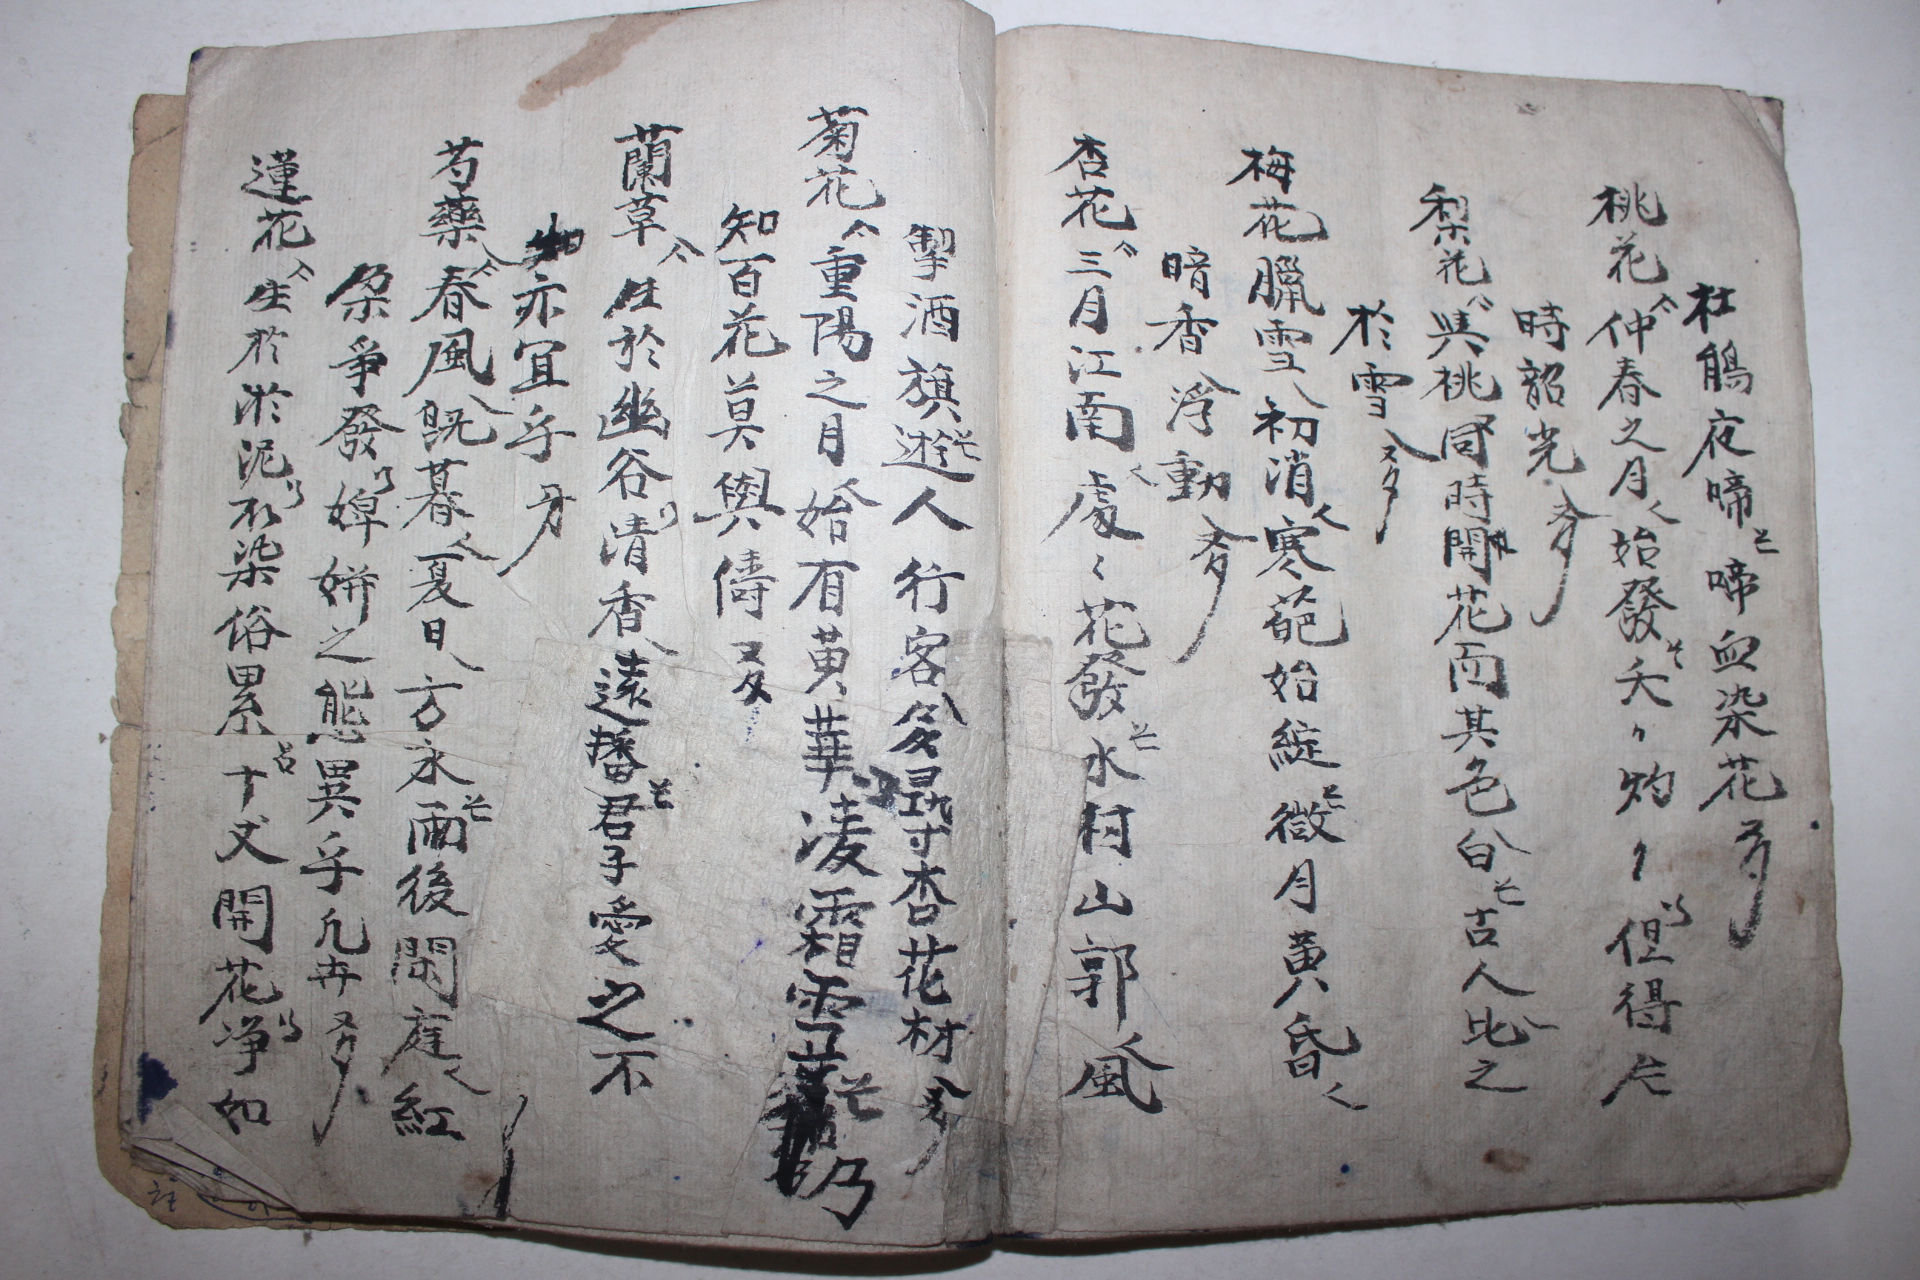 杜鵑夜啼 啼血染花
桃花 仲春之月 始發 夭〻灼〻 但得
時韶光
梨花 與桃同時開花而其色白 古人比之
於雪
梅花臘雪 初消 寒葩始綻 微月黃昏
暗香浮動
杏花 三月江南 處〻花發 水村山郭 風
掣酒旗 遊人行客 多尋杏花村
菊花 重陽之月 始有黃華 凌霜雪 乃
知百花莫與儔
蘭草 生於幽谷 清香遠播 君子愛之不
亦宜乎
芍藥 春風旣暮 夏日方永 雨後閑庭 紅
朶爭發 婢姸之態異乎凡卉
蓮花 生於淤泥 不染俗累 十丈開花 淨如